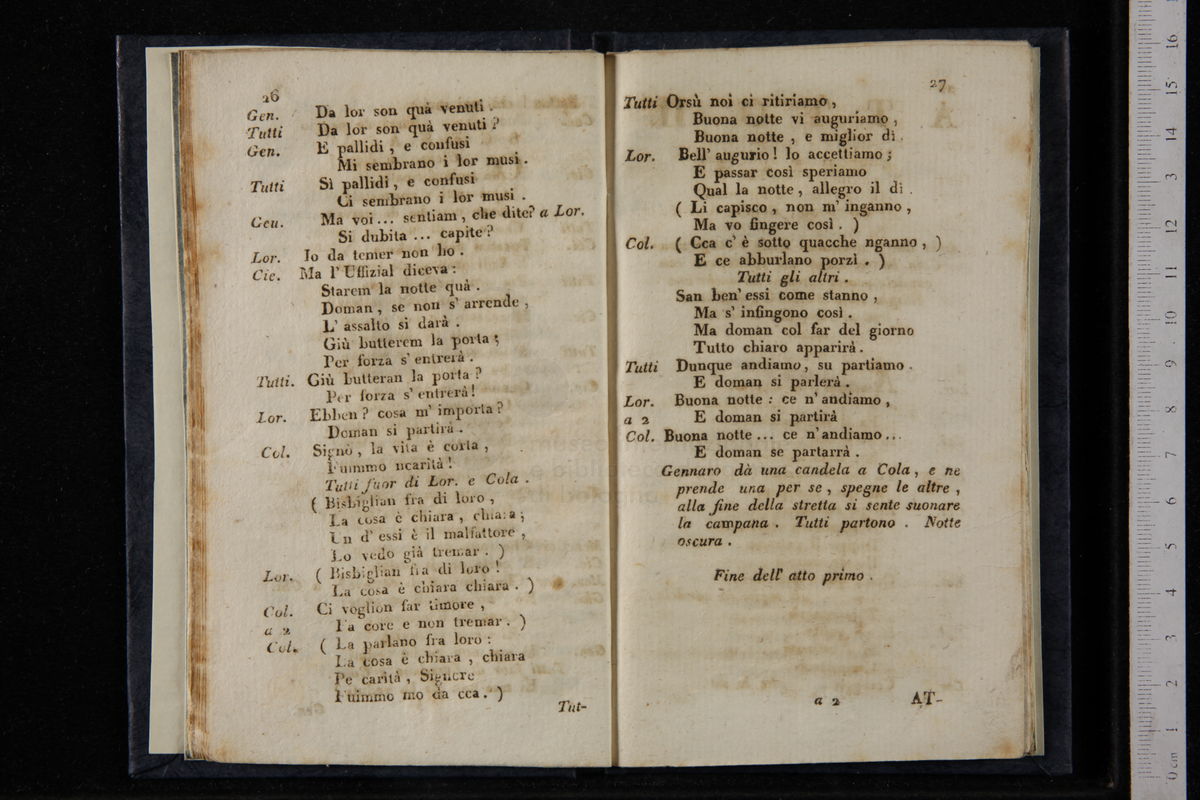 26
Gen. Da lor son quà venuti .
Tutti Da lor son quà venuti ?
Gen. E pallidi , e confusi
Mi sembrano i lor musi .
Tutti Sì pallidi , e confusi
Ci sembrano i lor musi .
Gen. Ma voi ... sentiam , che dite? a Lor.
Si dubita ... capite ?
Lor. Io da temer non ho .
Cic. Ma l' Uffizial diceva :
Starem la notte quà .
Doman , se non s' arrende ,
L' assalto si darà .
Giù butterem la porta ;
Per forza s' entrerà .
Tutti. Giù butteran la porta ?
Per forza s' entrerà !
Lor. Ebben ? cosa m' importa ?
Doman si partirà .
Col. Signò , la vita è corta ,
Fuimmo ncarità !
Tutti fuor di Lor. e Cola .
( Bisbiglian fra di loro ,
La cosa è chiara , chiara ;
Un d' essi è il malfattore ,
Lo vedo già tremar . )
Lor. ( Bisbiglian fra di loro !
La cosa è chiara chiara . )
Col. Ci voglion far timore ,
a 2 Fa core e non tremar . )
Col. ( La parlano fra loro :
La cosa è chiara , chiara
Pe carità , Signore
Fuimmo mo da cca . )
Tut-
27
Tutti Orsù noi ci ritiriamo ,
Buona notte vi auguriamo ,
Buona notte , e miglior dì .
Lor. Bell' augurio ! Io accettiamo ;
E passar così speriamo
Qual la notte , allegro il dì .
( Li capisco , non m' inganno ,
Ma vo fingere così . )
Col. ( Cca c' è sotto quacche nganno , )
E ce abburlano porzì . )
Tutti gli altri .
San ben' essi come stanno ,
Ma s' infingono così .
Ma doman col far del giorno
Tutto chiaro apparirà .
Tutti Dunque andiamo , su partiamo .
E doman si parlerà .
Lor. Buona notte : ce n' andiamo ,
a 2 E doman si partirà
Col. Buona notte ... ce n' andiamo ...
E doman se partarrà .
Gennaro dà una candela a Cola , e ne
prende una per se , spegne le altre ,
alla fine della stretta si sente suonare
la campana . Tutti partono . Notte
oscura .
Fine dell' atto primo .
a 2 AT-